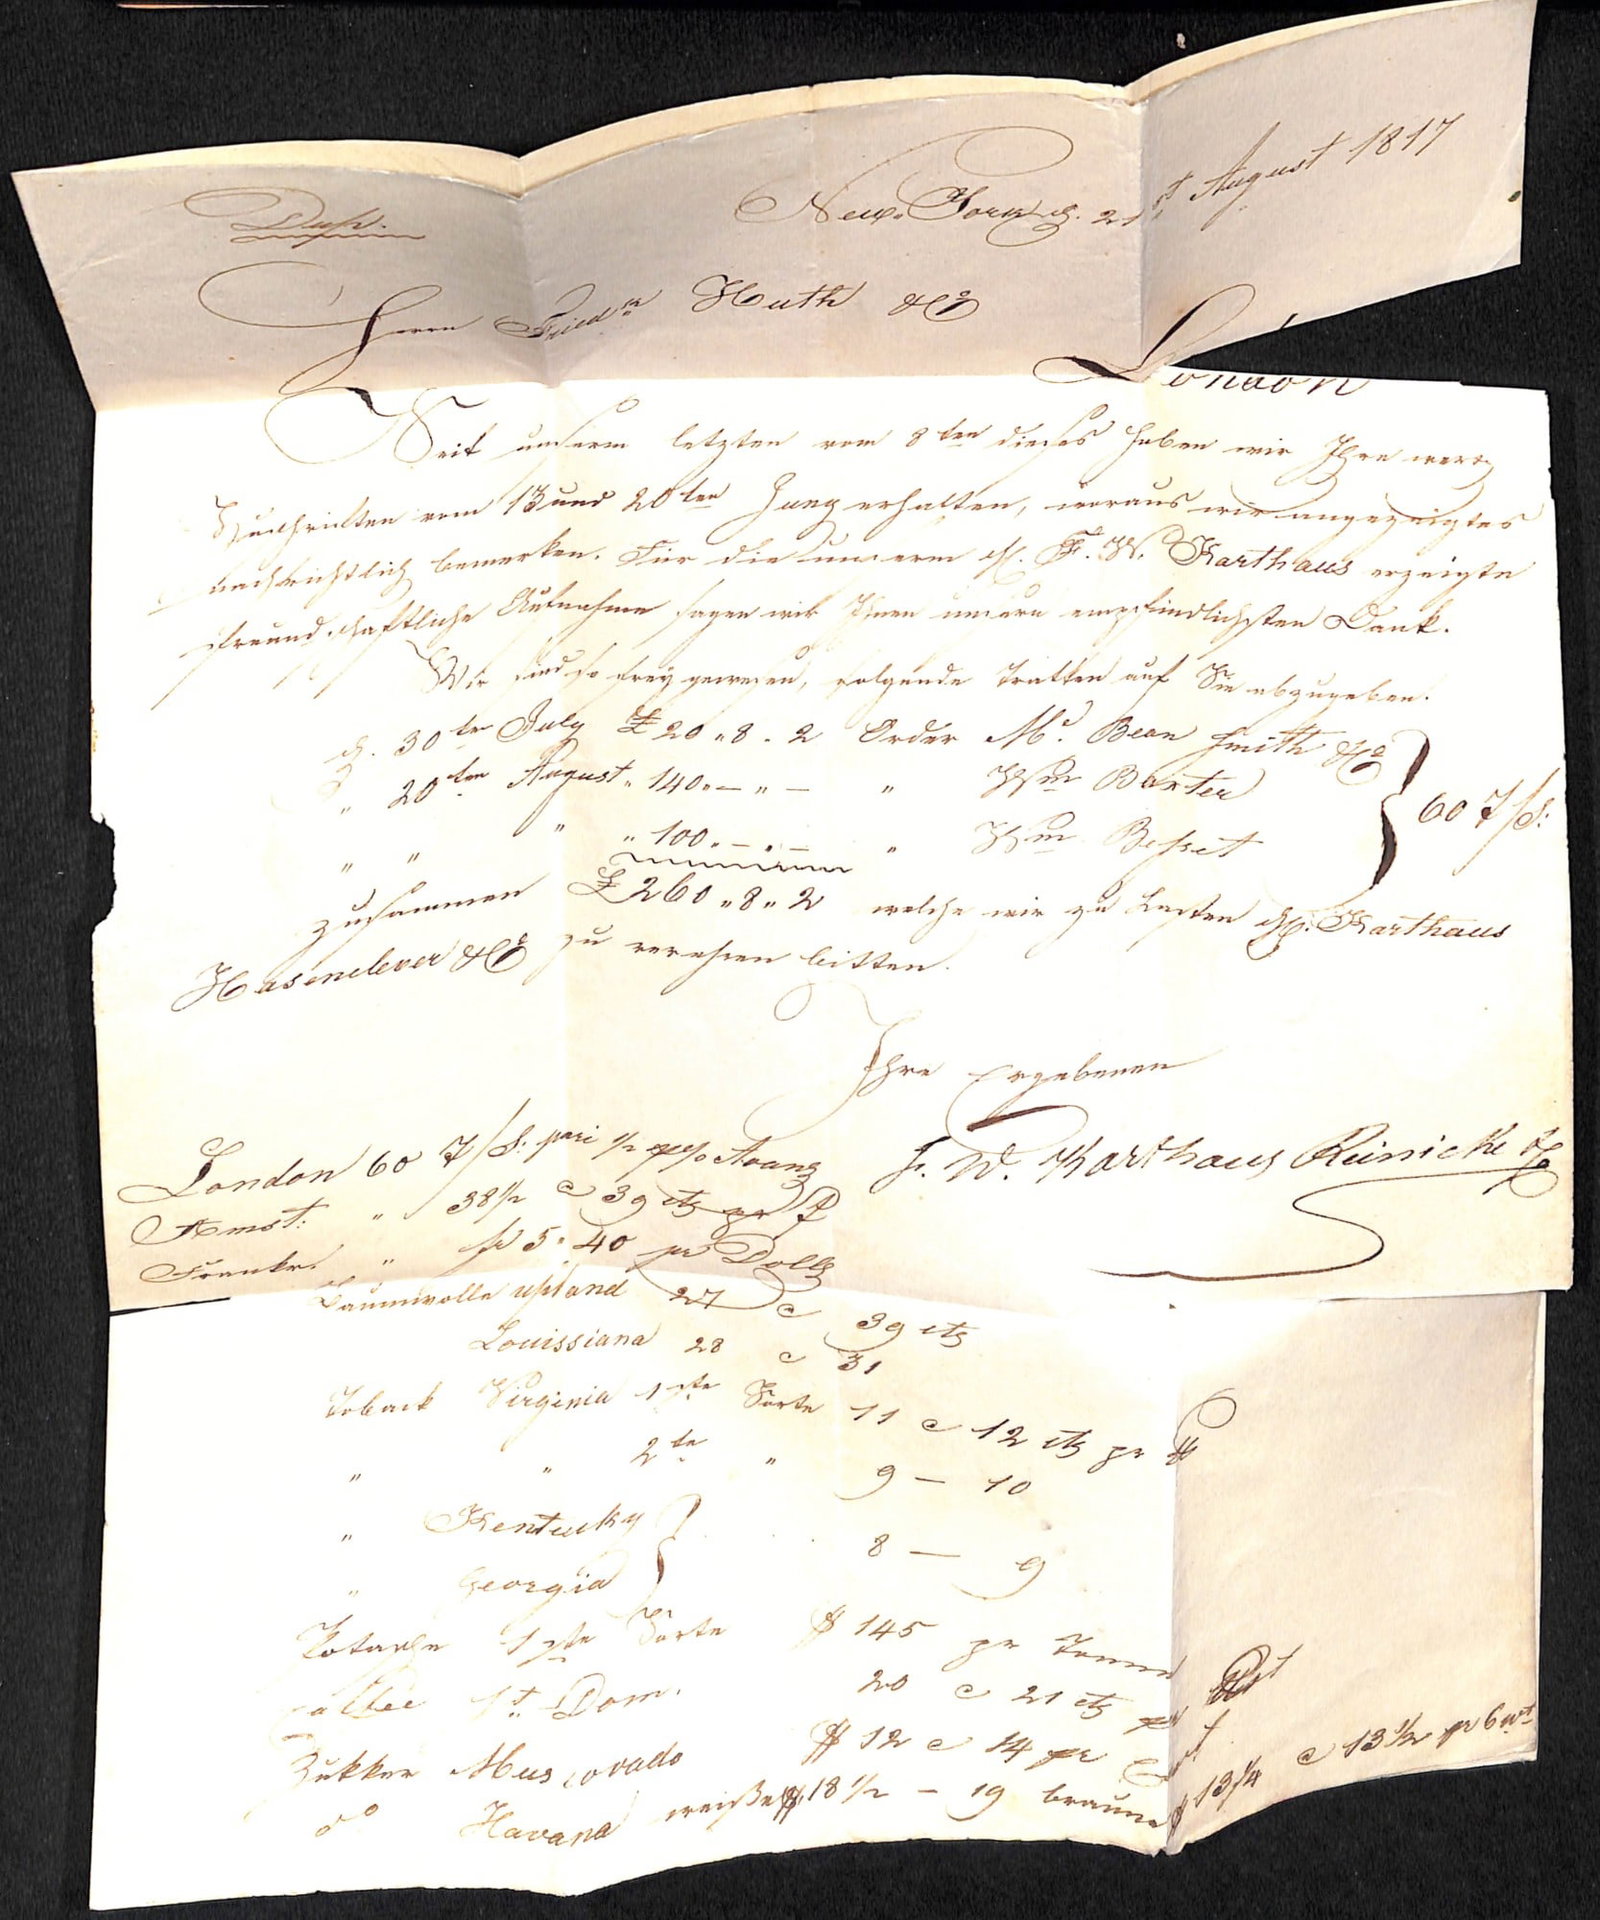 Dupl.
New-York d. 21st August 1817
Herrn Friedr. Huth & Co
London
Seit unserm letzten vom 8ten dieses haben wir Ihre werthen
Zuschriften vom 13 und 20ten Juny erhalten, woraus wir angezeigtes
nachrichtlich bemerken. Für die unserm H. F. W. Karthaus erzeigte
freundschaftliche Aufnahme sagen wir Ihnen unsern empfindlichsten Dank.
Wir sind so frey gewesen, folgende Tratten auf Sie abzugeben.
d. 30ten July £ 20 " 8 . 2 Order Ms. Bean Smith & Co
" 20ten August " 140 " — " — " Wm
" " " " 100 " — . — " Wm
60 T/S.
zusammen £ 260 " 8 " 2 welche wir zu Lasten HH. Karthaus
Hasenclever & Co zu bitten.
Ihre Ergebenen
F. W. Karthaus Reinicke & Co
London 60 T/S. pari 1/2 pc Avanz
Amst. " 38 1/2 a 39 cts pr f
Frankr. " fr 5 " 40 pr Dollr
Baumwolle upland 27 a 39 cts
Louissiana 28 a 31
Toback Virginia 1ste Sorte 11 a 12 cts pr ℔
" " 2te " 9 — 10
" Kentucky
8 — 9
" Georgia
Potasche 1ste Sorte $ 145 pr Tonne
Caffee St. Dom. 20 a 21 cts pr
Zukker Muscovado $ 12 a 14 pr Cwt
do Havana weißer $ 18 1/2 — 19 brauner $ 13 1/4 a 13 1/2 pr Cwt